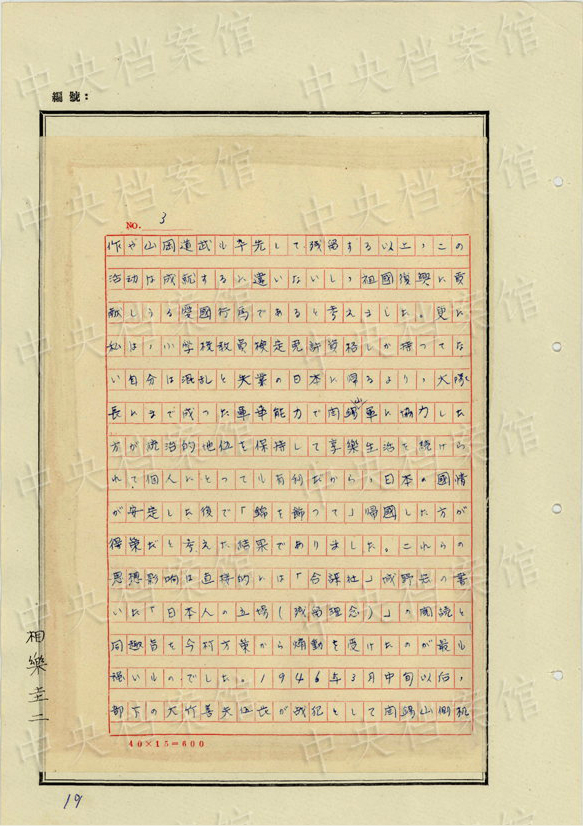 編號：
NO. 3
作や山岡道武も率先して残留する以上，この
活动は成就するに違いないし，祖國復興に貢
献しうる愛國行為であると考えました。更に
私は，小学校教員檢定免許資格しか持つてな
い自分は混乱と失業の日本に帰るより，大隊
長にまで成つた軍事能力で閻錫山軍に協力した
方が統治的地位を保持して享樂生活を続けら
れて個人にとつても有利だから，日本の國情
が安定した後で「錦を飾つて」帰國した方が
得策だと考えた結果でありました。これらの
思想影响は直接的には「合謀社」城野宏の書
いた「日本人の立場（残留理念）」の閲読と
同趣旨を今村方策から煽動を受けたのが最も
強いものでした。1946年3月中旬以后，
部下の大竹善夫伍長が战犯として閻錫山側机
40×15=600
相樂圭二
19
中央档案馆